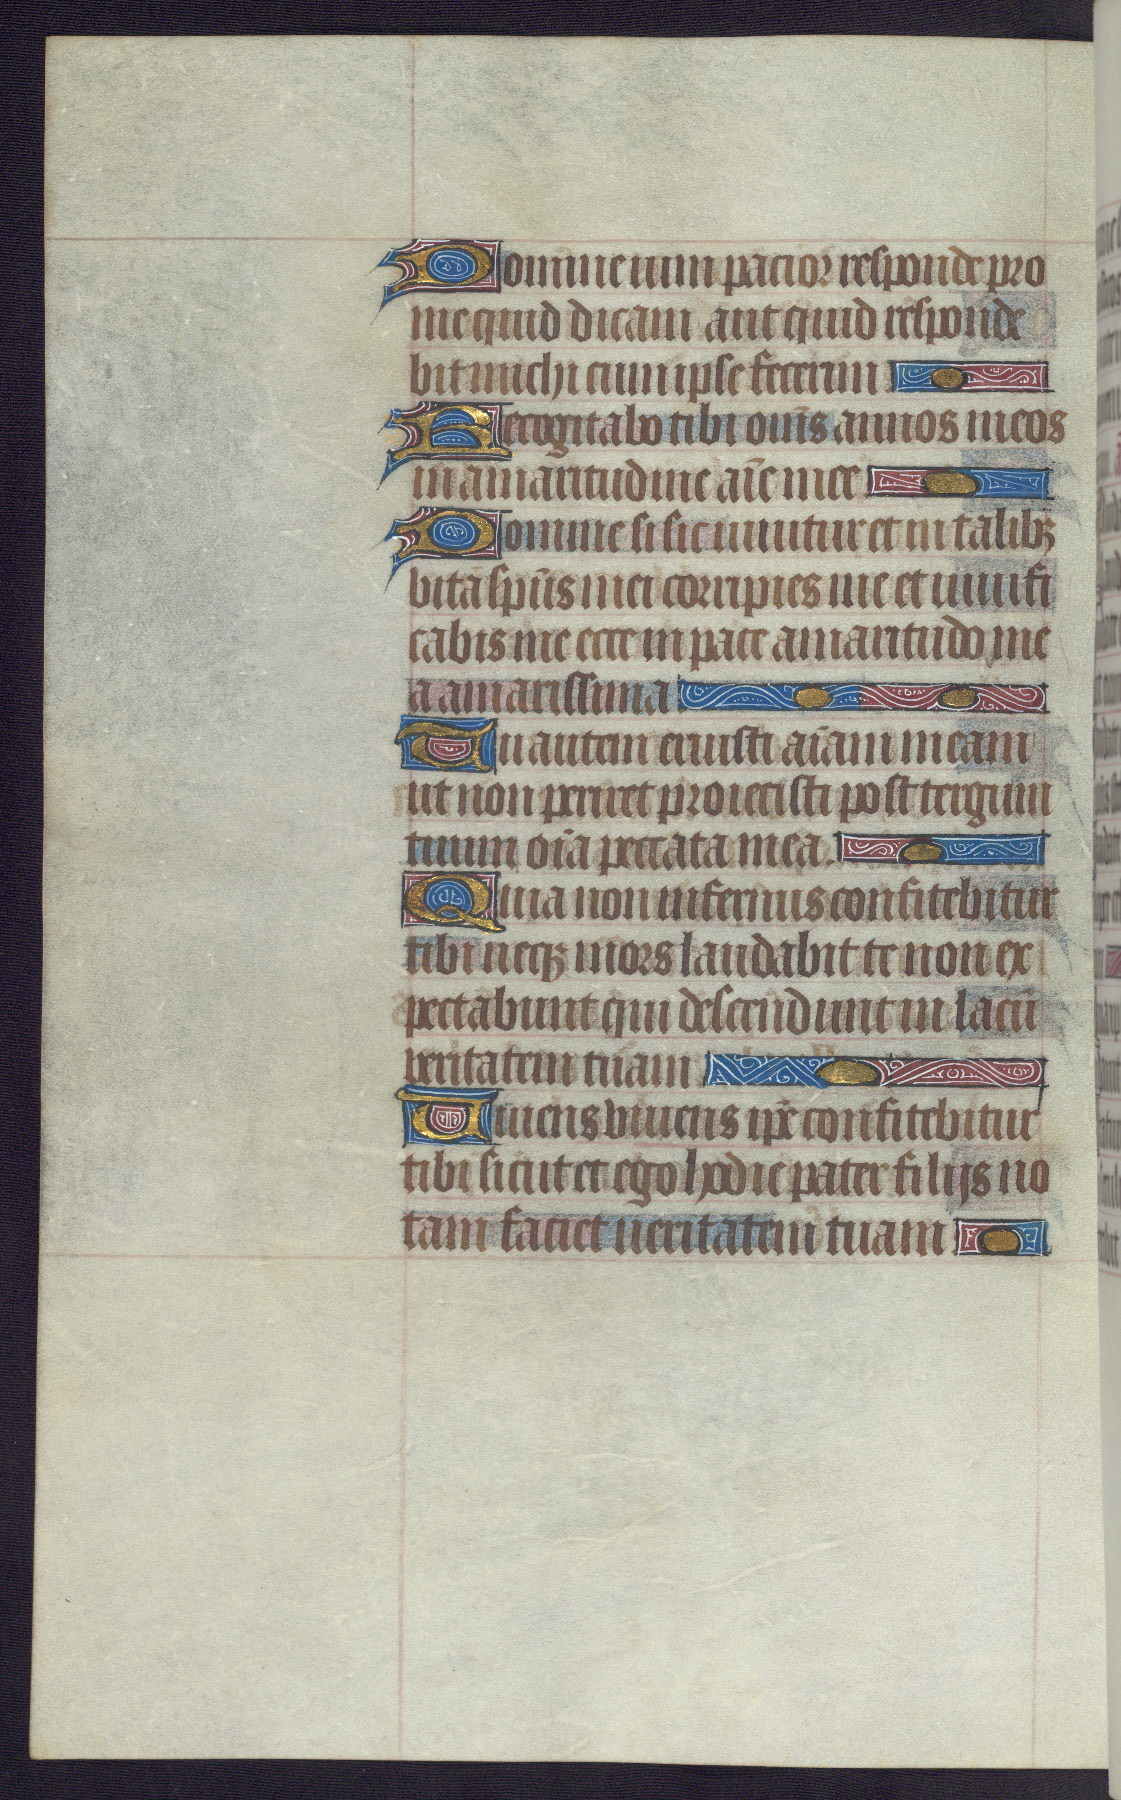 Domine uim pacior responde pro
me quid dicam aut quid responde
bit michi cum ipse fecerim
Recogitabo tibi om̄s annos meos
in amaritudine aīe mee
Domine si sic uiuitur et in talibꝫ
uita sp̄us mei corripies me et uiuifi
cabis me ecce in pace amaritudo me
a amarissima
Tu autem eruisti aīam meam
ut non periret proiecisti post tergum
tuum oīa peccata mea.
Quia non infernus confitebitur
tibi neqꝫ mors laudabit te non ex
pectabunt qui descendunt in lacū
veritatem tuam
Viuens viuens ip̄e confitebitur
tibi sicut et ego hodie pater filijs no
tam faciet ueritatem tuam